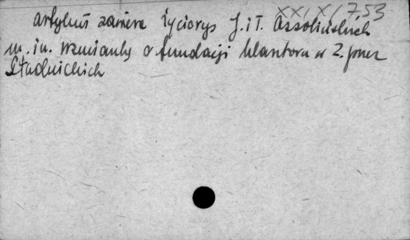 XXIX/753
artykuł zawiera życiorys J. i T. Ossolińskich
m. in. wzmianki o fundacji klasztoru w Z. przez
Stadnickich